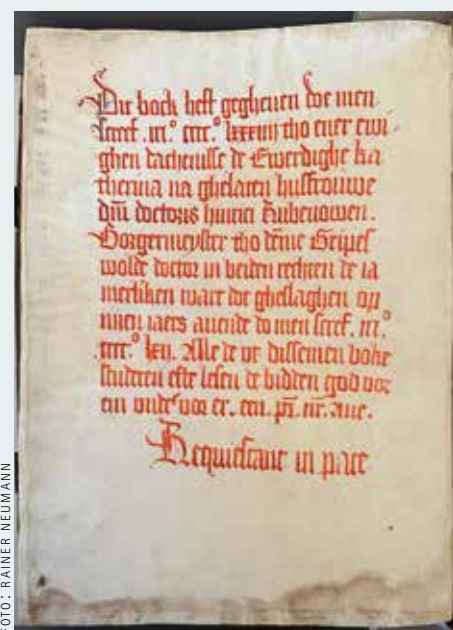 Dut bock heft gegheuen doe men
screef .m.° cccc.° lxxxiiij tho ener ewi-
ghen dachtnisse de Ewerdighe ka
therina na ghelaten husfrouwe
dni doctoris hinrici Rubenowen.
Borgermeyster tho deme Gripes
wolde doctor in beiden rechten de ia
merliken wart doe gheslaghen op
nuen iaers auende do men screef. m.°
.cccc.° lxij. Alle de vt dissemen boke
studeren efte lesen de bidden god vor
em vnde vor er. en. pr. nr. aue.
Requiescant in pace
FOTO: RAINER NEUMANN